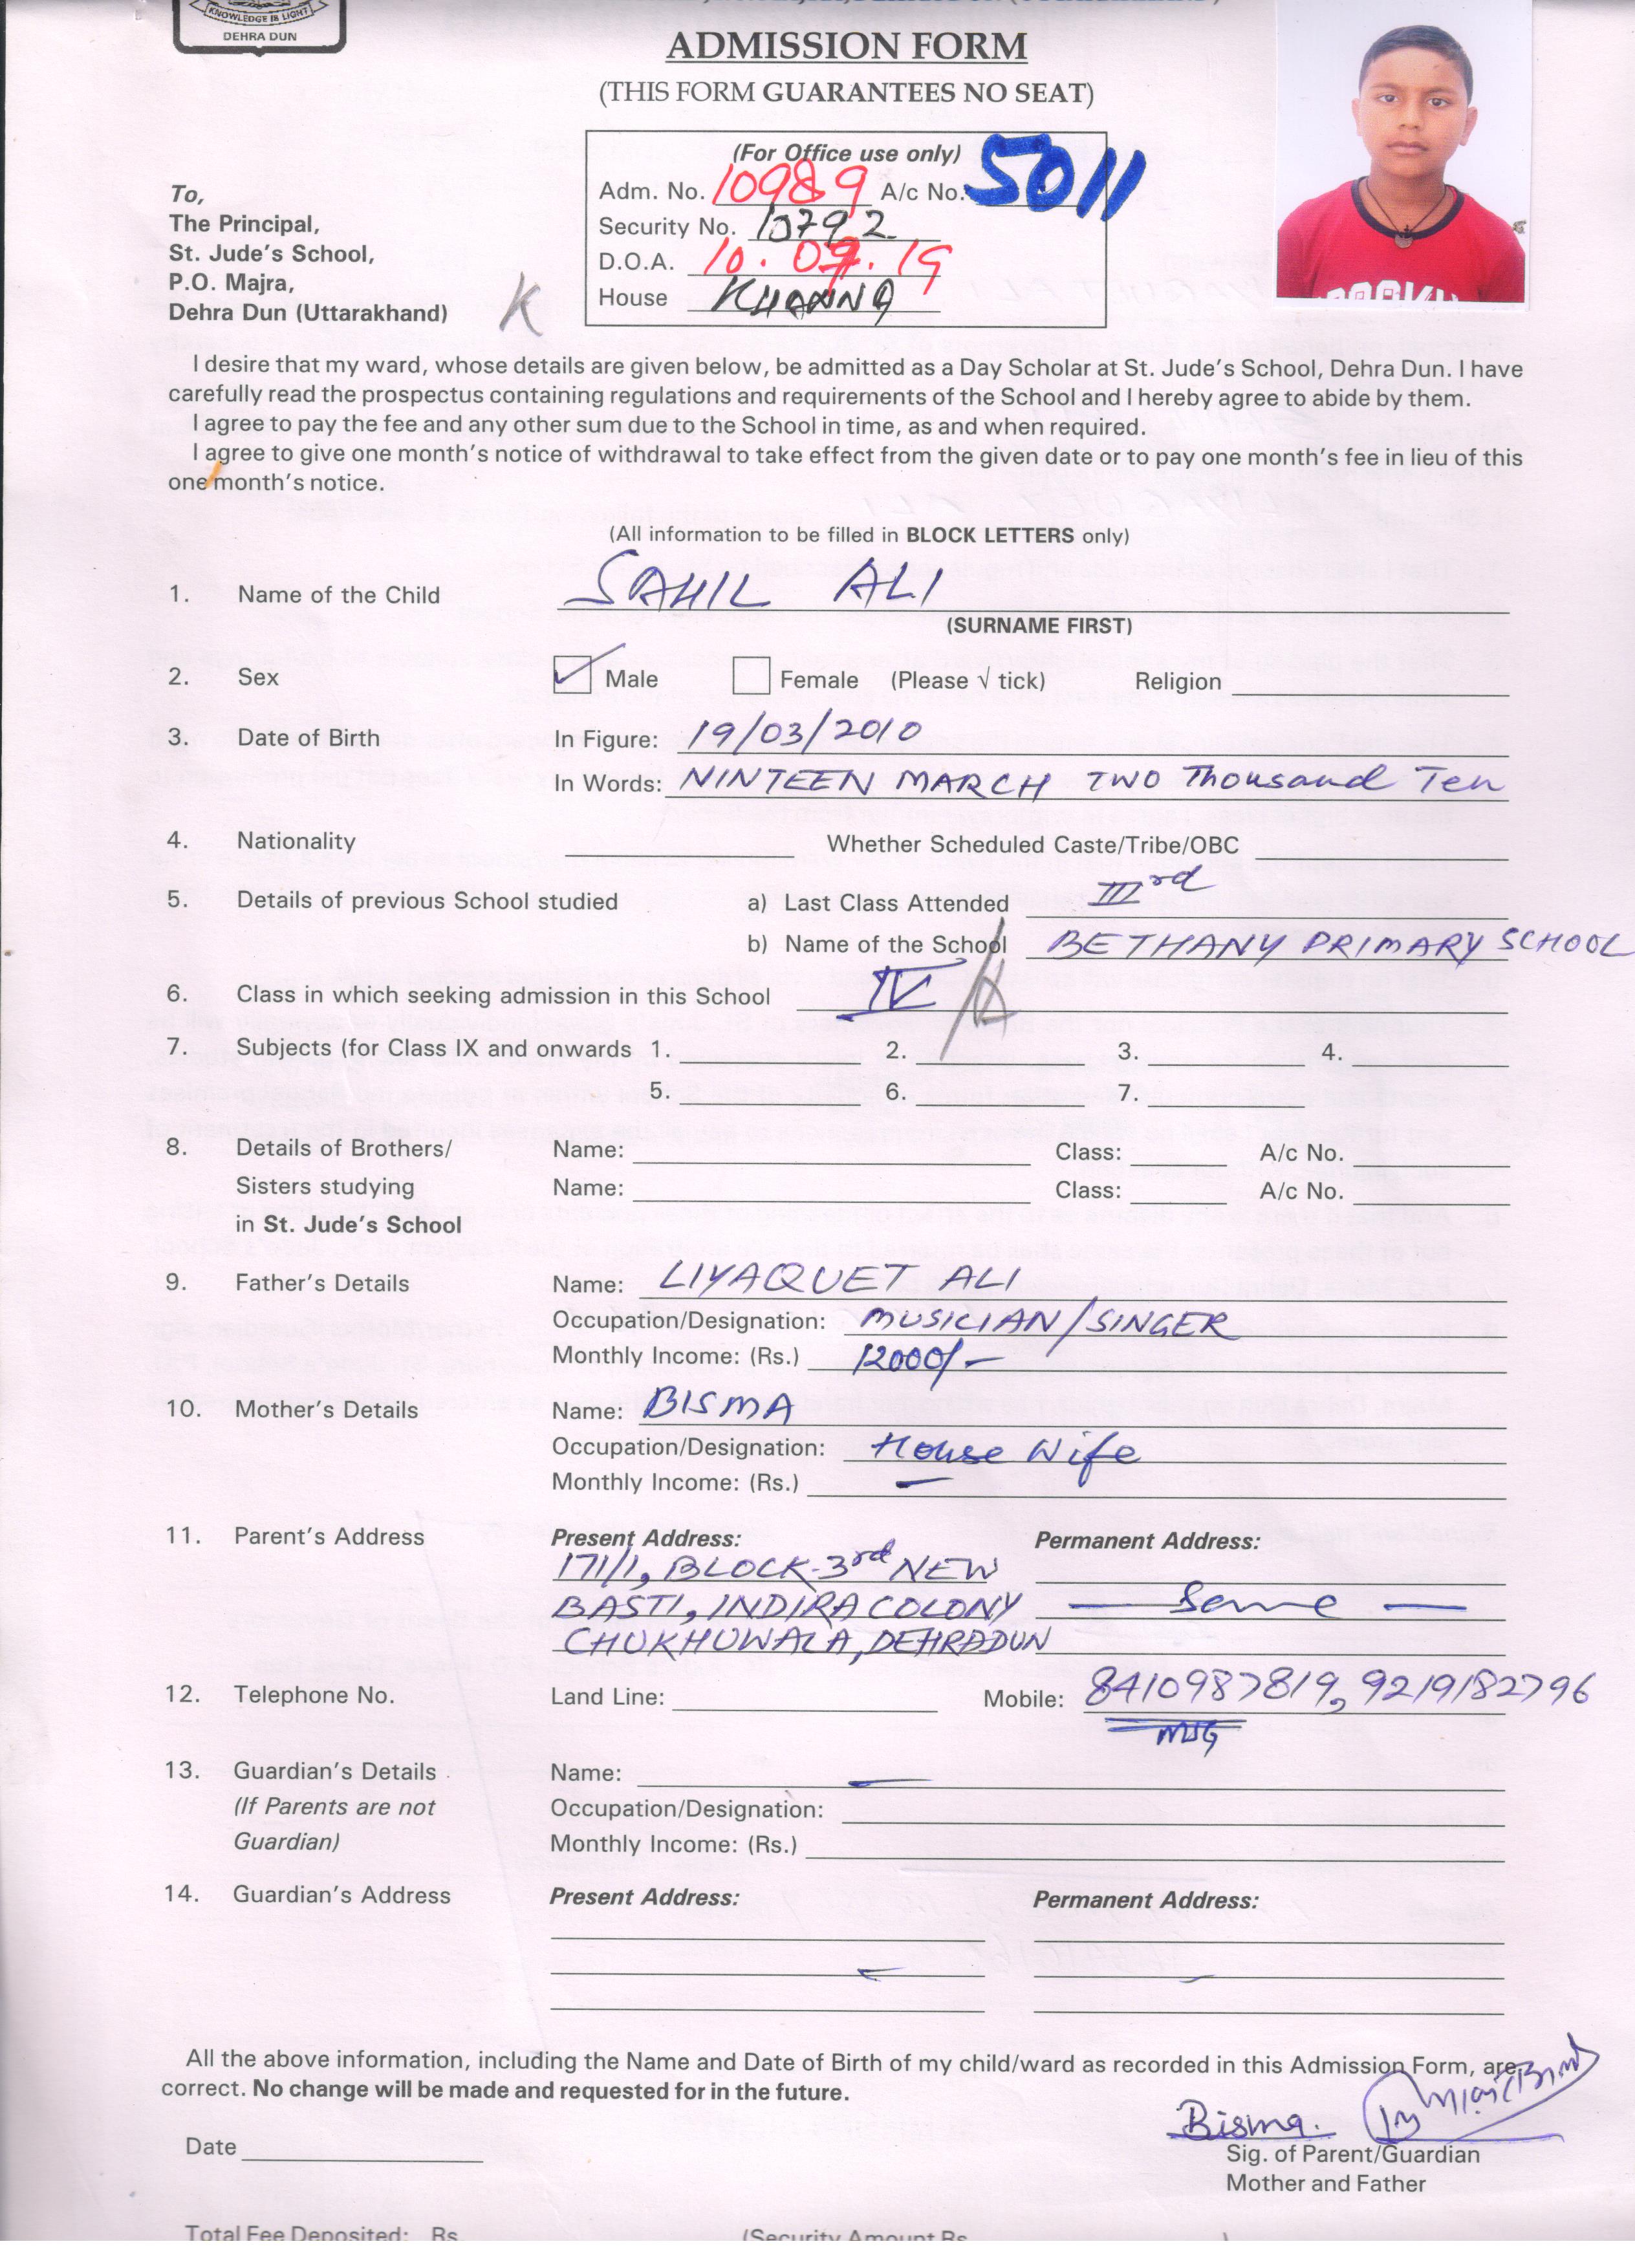 KNOWLEDGE IS LIGHT
DEHRA DUN
ADMISSION FORM
(THIS FORM GUARANTEES NO SEAT)
(For Office use only)
Adm. No. 10989 A/c No. 5011
Security No. 10792
D.O.A. 10.07.19
House KHANNA
To,
The Principal,
St. Jude's School,
P.O. Majra,
Dehra Dun (Uttarakhand)
K
I desire that my ward, whose details are given below, be admitted as a Day Scholar at St. Jude's School, Dehra Dun. I have
carefully read the prospectus containing regulations and requirements of the School and I hereby agree to abide by them.
I agree to pay the fee and any other sum due to the School in time, as and when required.
I agree to give one month's notice of withdrawal to take effect from the given date or to pay one month's fee in lieu of this
one month's notice.
(All information to be filled in BLOCK LETTERS only)
1. Name of the Child SAHIL ALI
(SURNAME FIRST)
2. Sex Male Female (Please √ tick) Religion
3. Date of Birth In Figure: 19/03/2010
In Words: NINTEEN MARCH TWO Thousand Ten
4. Nationality Whether Scheduled Caste/Tribe/OBC
5. Details of previous School studied a) Last Class Attended IIIrd
b) Name of the School BETHANY PRIMARY SCHOOL
6. Class in which seeking admission in this School IV /A
7. Subjects (for Class IX and onwards 1. 2. 3. 4.
5. 6. 7.
8. Details of Brothers/ Name: Class: A/c No.
Sisters studying Name: Class: A/c No.
in St. Jude's School
9. Father's Details Name: LIYAQUET ALI
Occupation/Designation: MUSICIAN/SINGER
Monthly Income: (Rs.) 12000/-
10. Mother's Details Name: BISMA
Occupation/Designation: House Wife
Monthly Income: (Rs.) —
11. Parent's Address Present Address: Permanent Address:
171/1, BLOCK-3rd NEW
BASTI, INDIRA COLONY — Same —
CHUKHUWALA, DEHRADUN
12. Telephone No. Land Line: Mobile: 8410987819, 9219182796
MSG
13. Guardian's Details Name: —
(If Parents are not Occupation/Designation:
Guardian) Monthly Income: (Rs.)
14. Guardian's Address Present Address: Permanent Address:
All the above information, including the Name and Date of Birth of my child/ward as recorded in this Admission Form, are
correct. No change will be made and requested for in the future.
Bisma.
Date Sig. of Parent/Guardian
Mother and Father
Total Fee Deposited: Rs. (Security Amount Rs. )